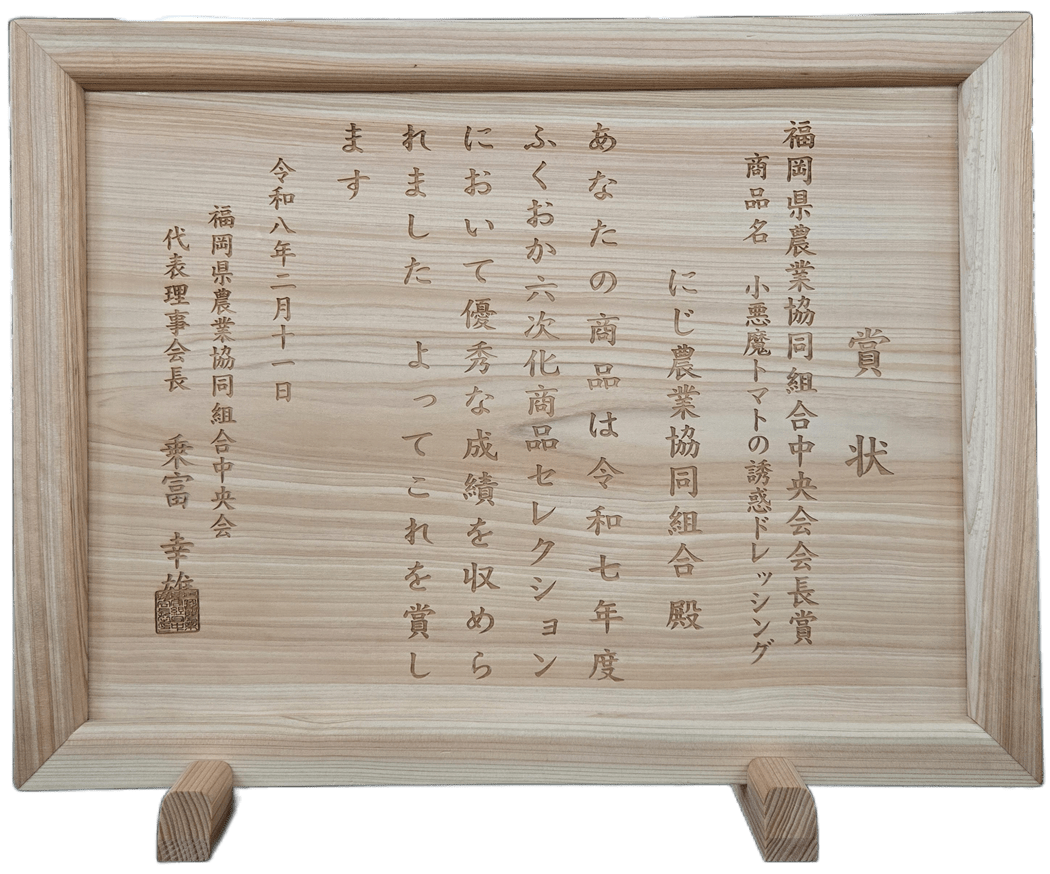 賞状
福岡県農業協同組合中央会会長賞
商品名 小悪魔トマトの誘惑ドレッシング
にじ農業協同組合 殿
あなたの商品は令和七年度
ふくおか六次化商品セレクション
において優秀な成績を収めら
れました よってこれを賞し
ます
令和八年二月十一日
福岡県農業協同組合中央会
代表理事会長 乗富 幸雄